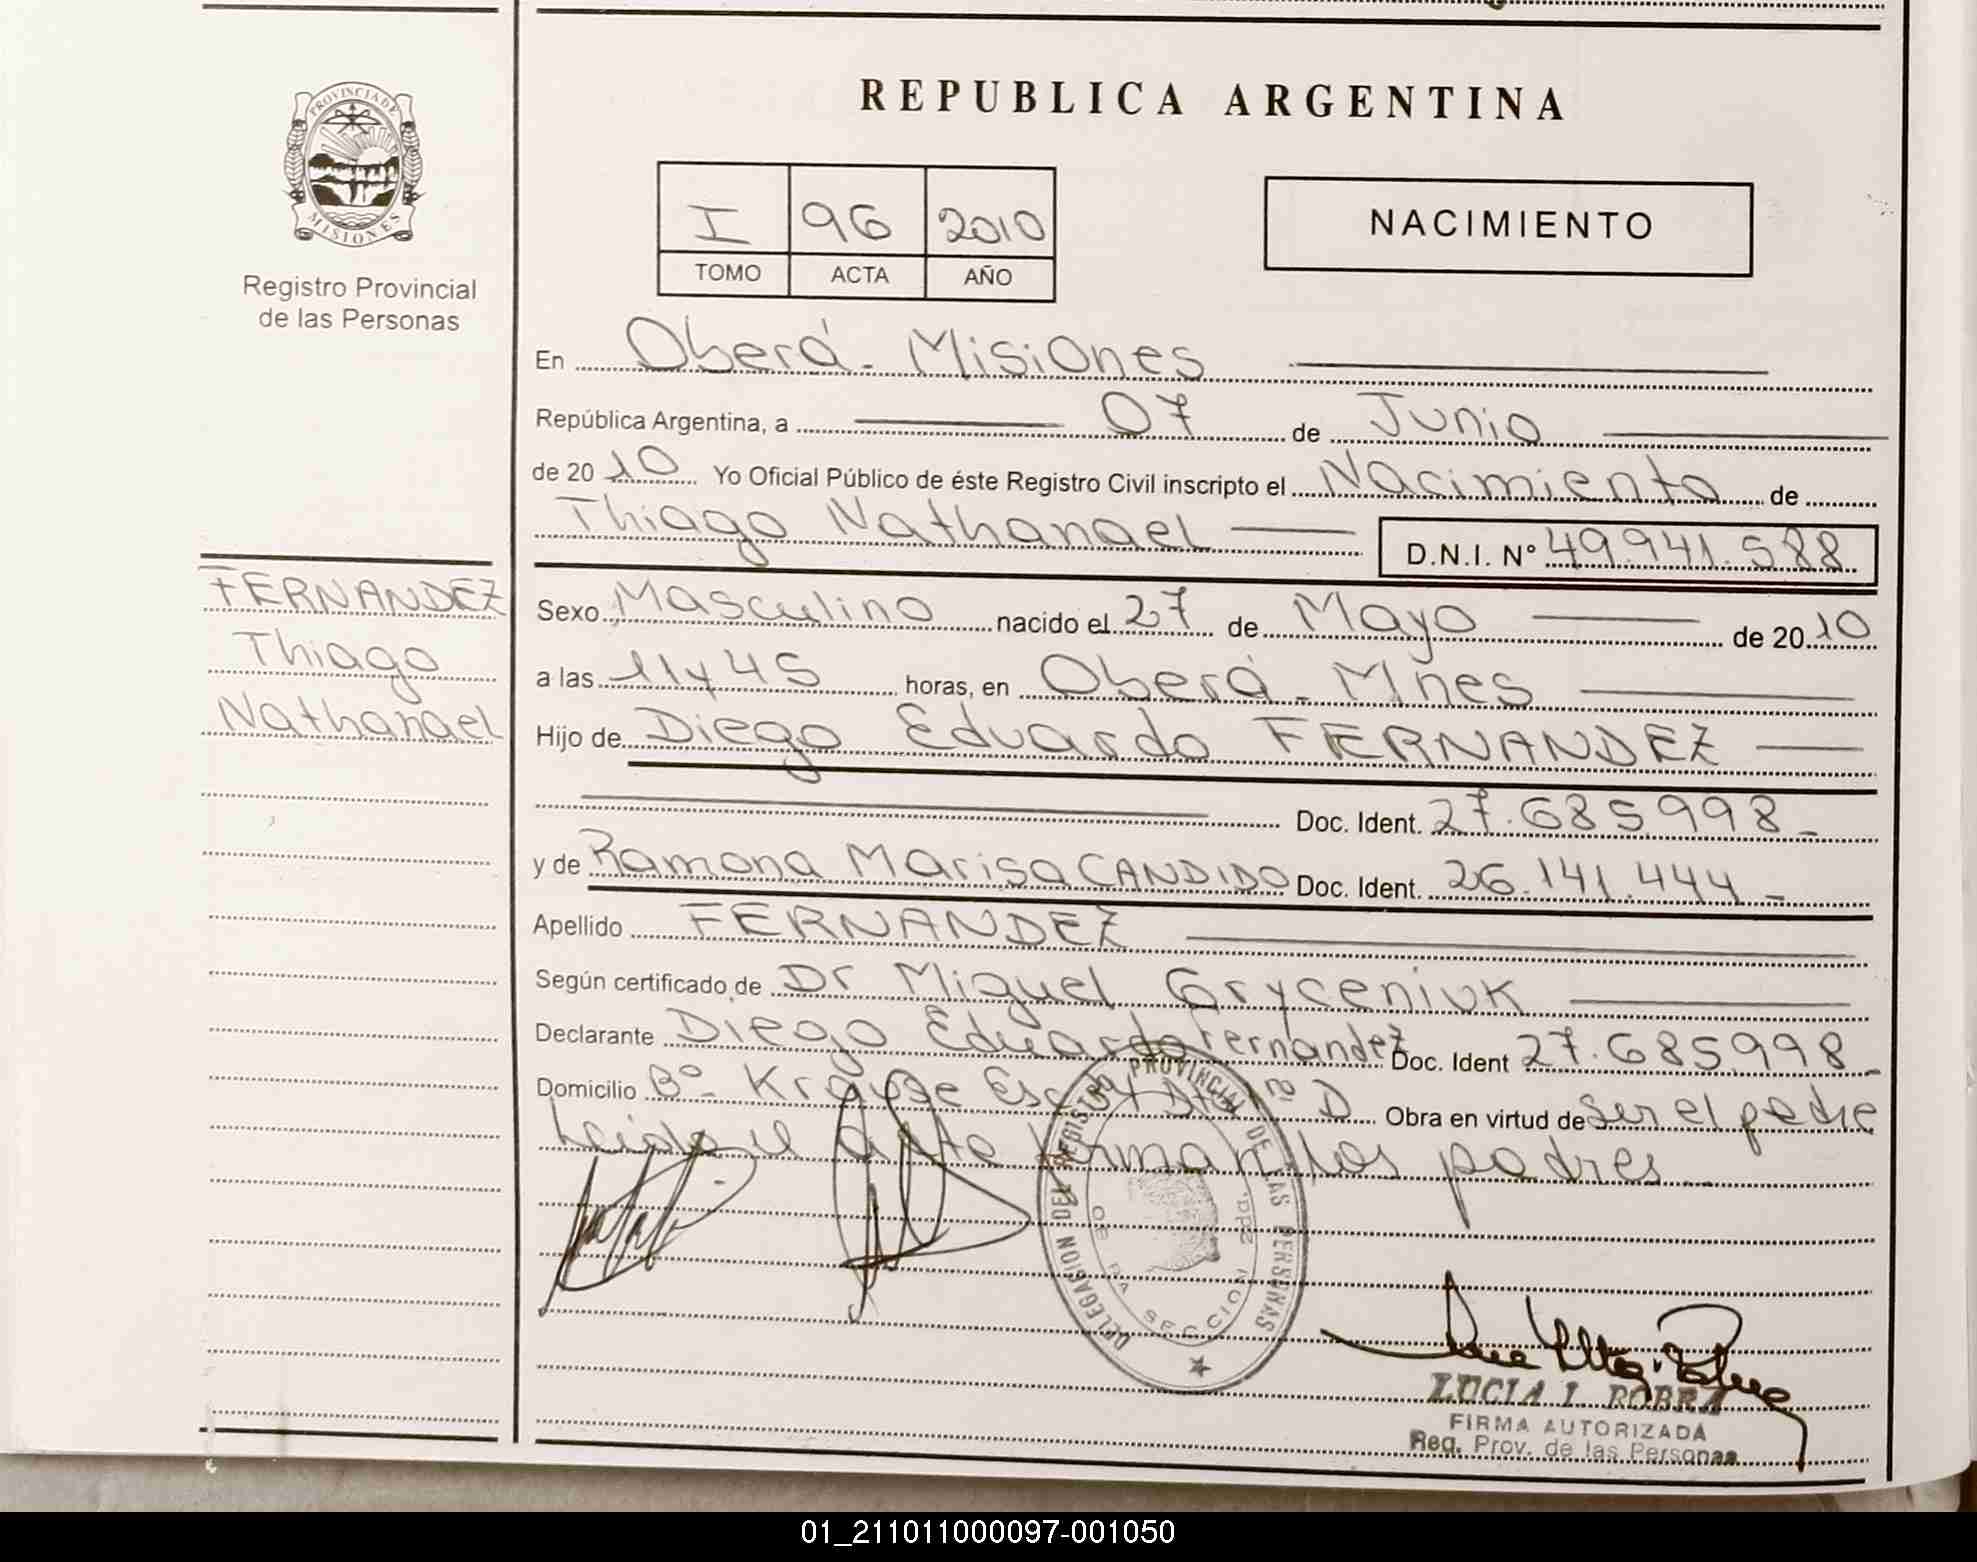 PROVINCIA DE
MISIONES
Registro Provincial
de las Personas
FERNANDEZ
Thiago
Nathanael
REPUBLICA ARGENTINA
I 96 2010
TOMO ACTA AÑO
NACIMIENTO
En Oberá - Misiones
República Argentina, a 07 de Junio
de 2010 Yo Oficial Público de éste Registro Civil inscripto el Nacimiento de
Thiago Nathanael D.N.I. Nº 49.941.588
Sexo Masculino nacido el 27 de Mayo de 2010
a las 11 y 45 horas, en Oberá - Mnes
Hijo de Diego Eduardo FERNANDEZ
Doc. Ident. 27.685.998 -
y de Ramona Marisa CANDIDO Doc. Ident. 26.141.444 -
Apellido FERNANDEZ
Según certificado de Dr Miguel Gryceniuk
Declarante Diego Eduardo Fernandez Doc. Ident 27.685.998 -
Domicilio Bº - Krause Esc Dto D Obra en virtud de Ser el padre
Leida el Acta firman los padres
DELEGACION DEL REGISTRO PROVINCIAL DE LAS PERSONAS
OBERA SECCION 2da.
LUCIA I. ROBRA
FIRMA AUTORIZADA
Reg. Prov. de las Personas
01_211011000097-001050